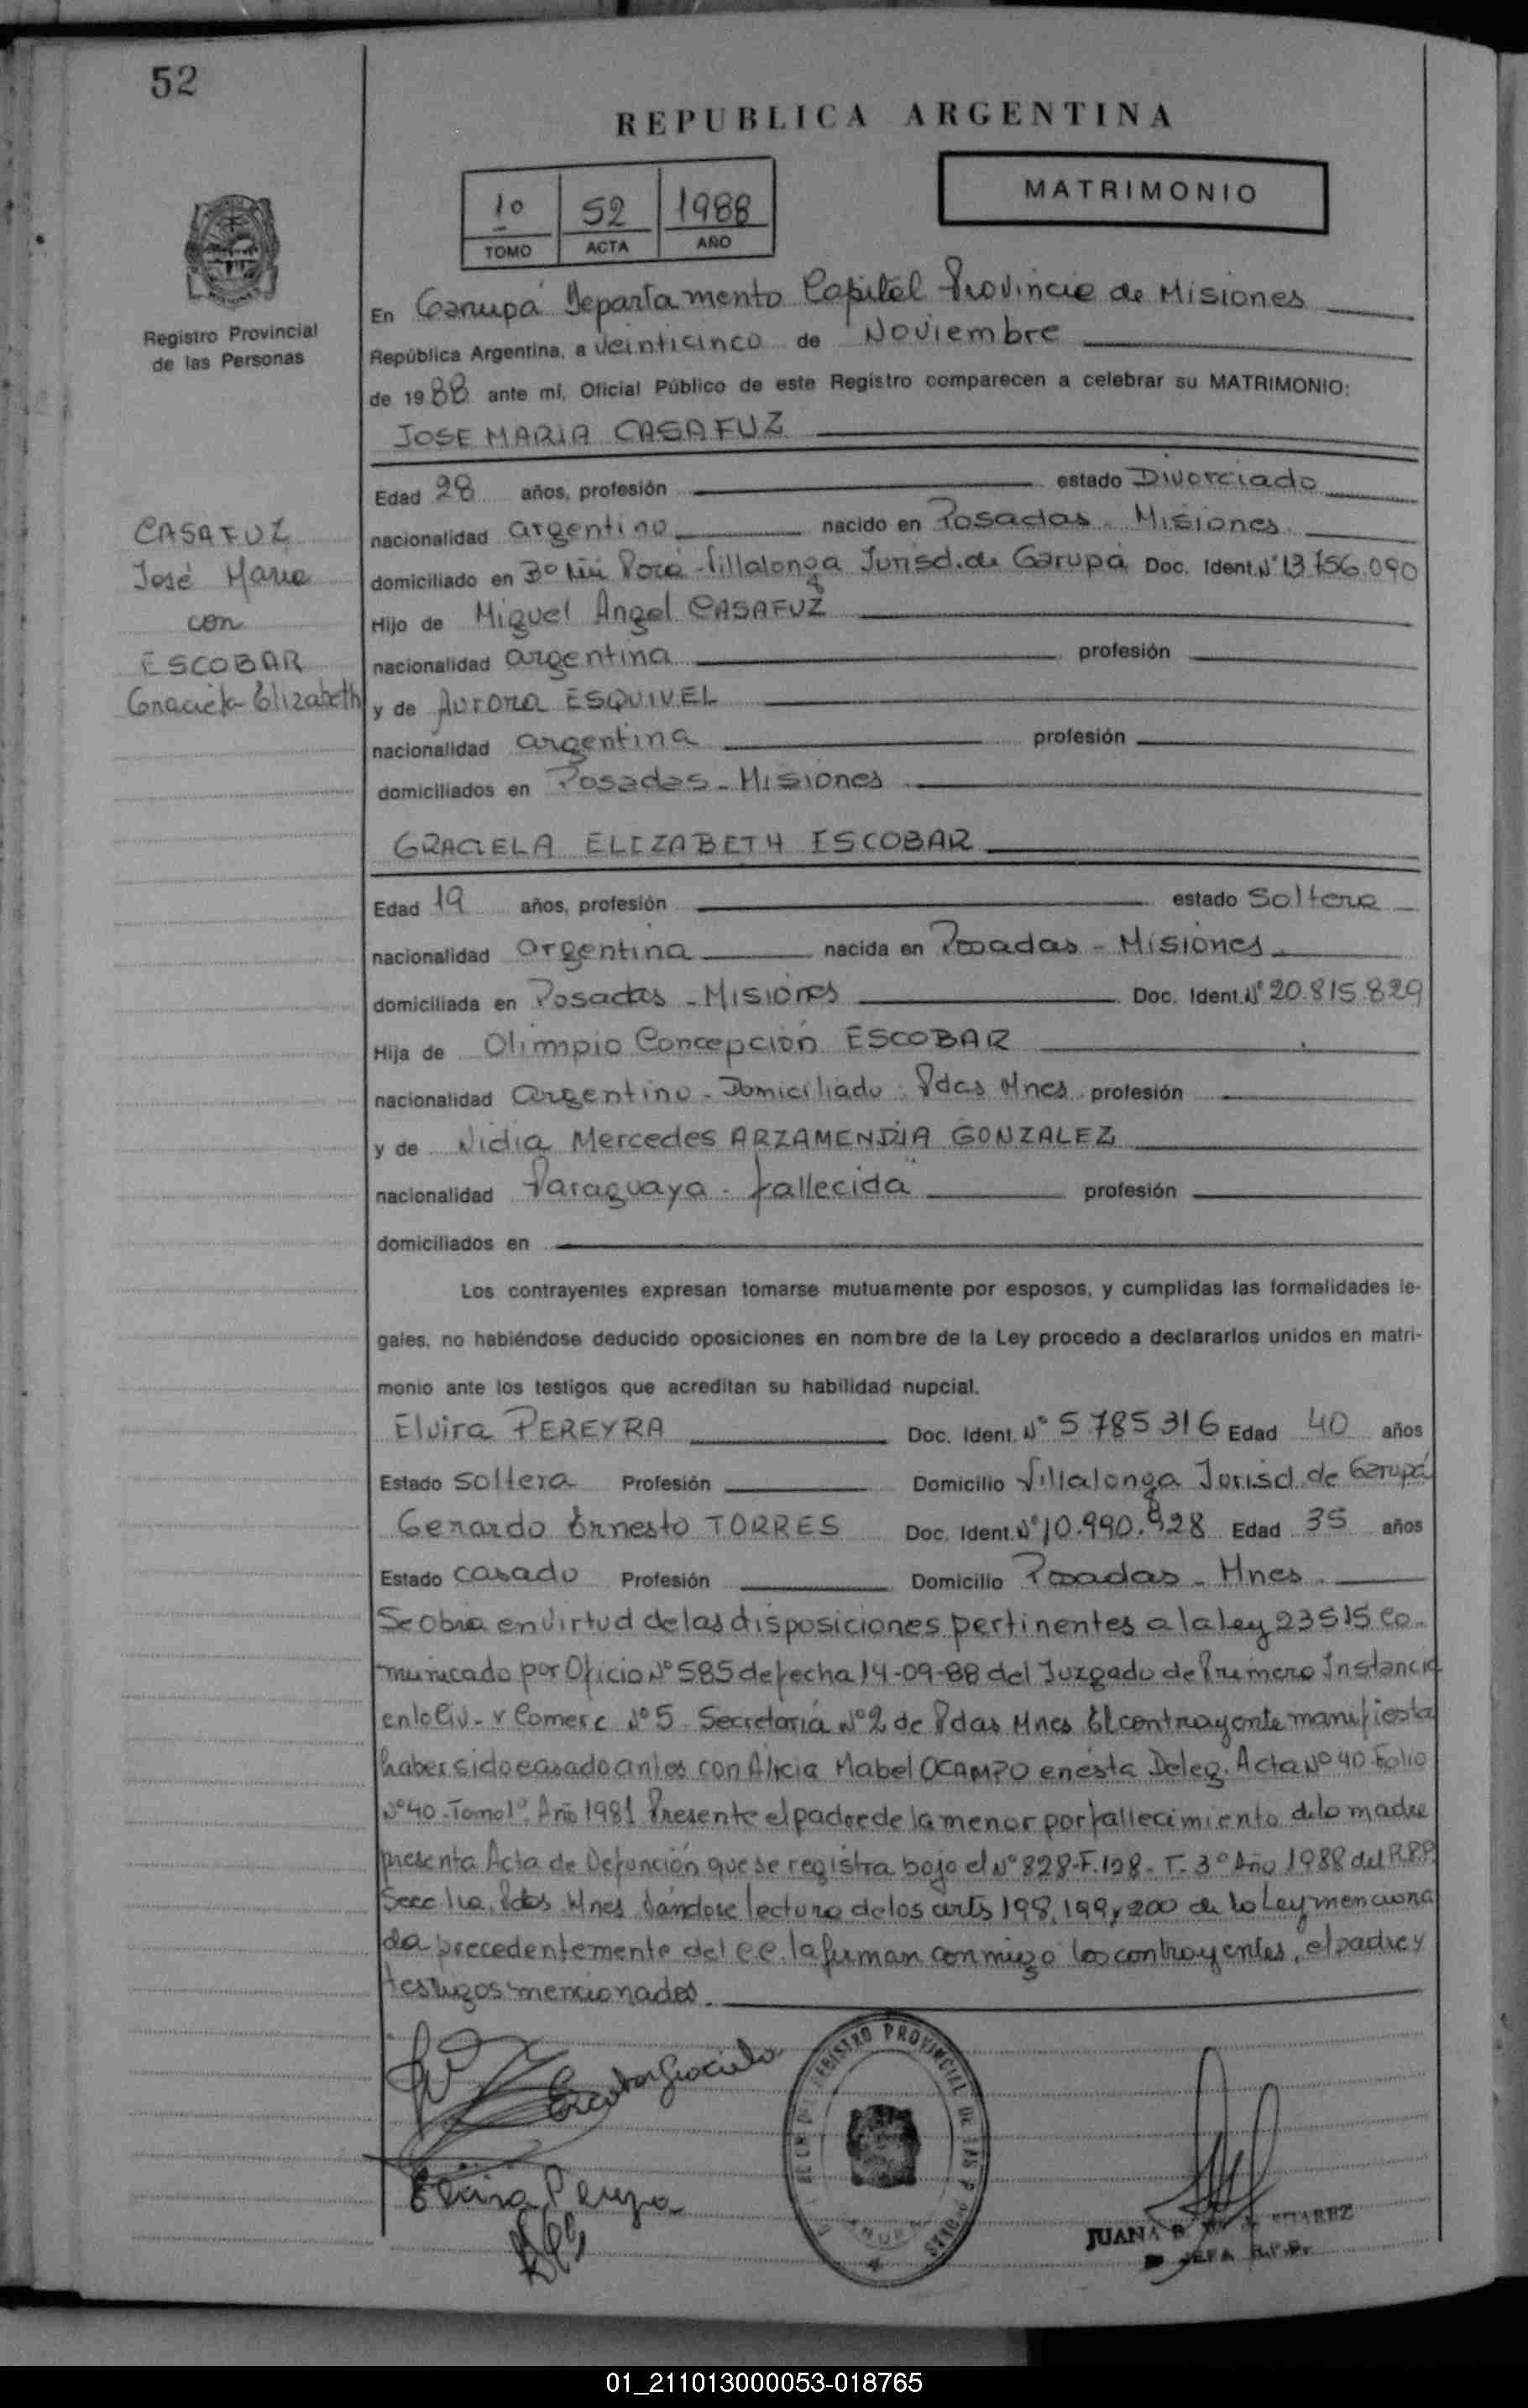 52
REPUBLICA ARGENTINA
MATRIMONIO
1º 52 1988
TOMO ACTA AÑO
Registro Provincial
de las Personas
En Garupá Departamento Capital Provincia de Misiones
República Argentina, a veinticinco de Noviembre
de 1988 ante mí, Oficial Público de este Registro comparecen a celebrar su MATRIMONIO:
JOSE MARIA CASAFUZ
Edad 28 años, profesión estado Divorciado
nacionalidad argentino nacido en Posadas - Misiones
domiciliado en Bº Porá - Villalonga Jurisd. de Garupá Doc. Ident. Nº 13.756.090
Hijo de Miguel Angel CASAFUZ
nacionalidad argentina profesión
y de Aurora ESQUIVEL
nacionalidad argentina profesión
domiciliados en Posadas - Misiones
CASAFUZ
José Maria
con
ESCOBAR
Graciela Elizabeth
GRACIELA ELIZABETH ESCOBAR
Edad 19 años, profesión estado Soltera
nacionalidad argentina nacida en Posadas - Misiones
domiciliada en Posadas - Misiones Doc. Ident. Nº 20.815.829
Hija de Olimpio Concepción ESCOBAR
nacionalidad argentino - Domiciliado: Pdas Mnes profesión
y de Nidia Mercedes ARZAMENDIA GONZALEZ
nacionalidad Paraguaya - fallecida profesión
domiciliados en
Los contrayentes expresan tomarse mutuamente por esposos, y cumplidas las formalidades le-
gales, no habiéndose deducido oposiciones en nombre de la Ley procedo a declararlos unidos en matri-
monio ante los testigos que acreditan su habilidad nupcial.
Elvira PEREYRA Doc. Ident. Nº 5785316 Edad 40 años
Estado soltera Profesión Domicilio Villalonga Jurisd. de Garupá
Gerardo Ernesto TORRES Doc. Ident. Nº 10.990.928 Edad 35 años
Estado casado Profesión Domicilio Posadas - Mnes
Se obra en virtud de las disposiciones pertinentes a la Ley 23515 Co-
municado por Oficio Nº 585 de fecha 14-09-88 del Juzgado de Primera Instancia
en lo Civ. y Comerc Nº 5 Secretaría Nº 2 de Pdas Mnes El contrayente manifiesta
haber sido casado antes con Alicia Mabel OCAMPO en ésta Deleg. Acta Nº 40 - Folio
Nº 40 - Tomo 1º Año 1981 Presente el padre de la menor por fallecimiento de la madre
presenta Acta de Defunción que se registra bajo el Nº 828 - F. 128 - T. 3º Año 1988 del R.P.P.
Secc 1ra, Pdas Mnes Dándose lectura de los arts 198, 199 y 200 de la Ley menciona
da precedentemente del c.c. la firman conmigo los contrayentes, el padre y
testigos mencionados.
Escobar Graciela
Elvira Pereyra
REGISTRO PROVINCIAL DE LAS
JUANA B. SUAREZ
JEFA R.P.P.
01_211013000053-018765